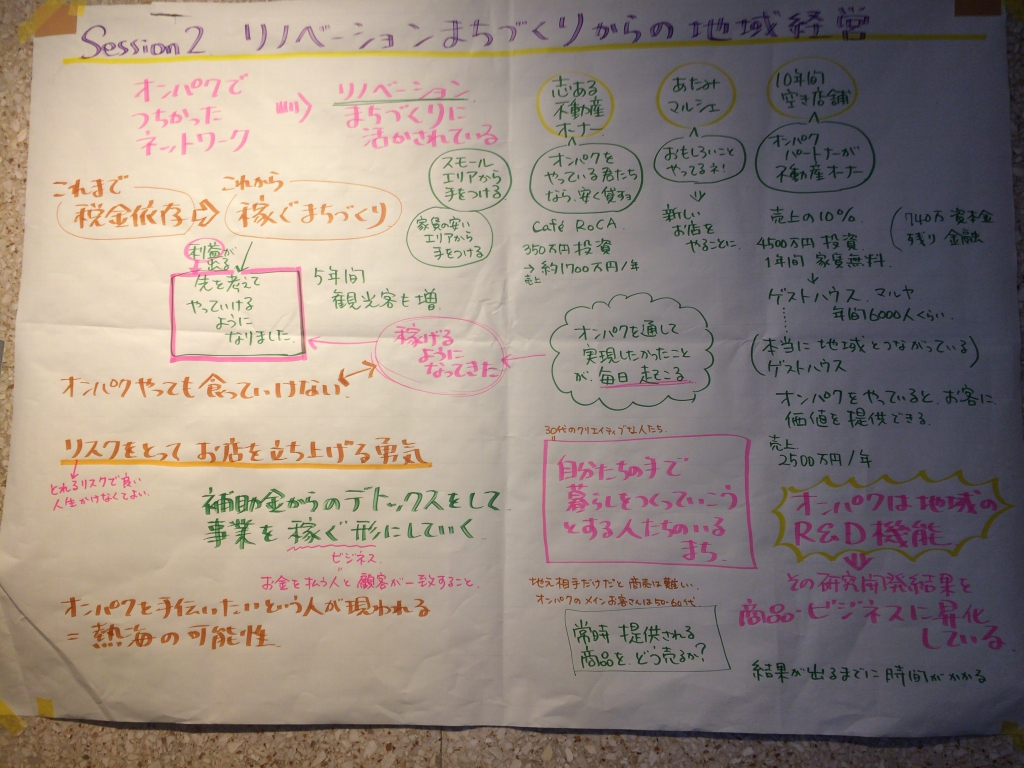 Session2 リノベーションまちづくりからの地域経営
オンパクで
つちかった
ネットワーク
⇒
リノベーション
まちづくりに
活かされている
これまで
税金依存
⇨
これから
稼ぐまちづくり
利益が
出る
先を考えて
やっていける
ように
なりました
5年間
観光客も増
スモール
エリアから
手をつける
家賃の安い
エリアから
手をつける
志ある
不動産
オーナー
オンパクを
やっている君たち
なら、安く貸す。
Café RoCA
350万円投資
→約1700万円/年
売上
あたみ
マルシェ
おもしろいこと
やってるネ!
新しい
お店を
やることに。
10年間
空き店舗
オンパク
パートナーが
不動産オーナー
売上の10%
4500万円投資
1年間 家賃無料
740万 資本金
残り 金融
ゲストハウス マルヤ
年間6000人くらい
(本当に地域とつながっている)
ゲストハウス
オンパクをやっていると、お客に
価値を提供できる
売上
2500万円/年
オンパクを通して
実現したかったこと
が、毎日 起こる
稼げる
ように
なってきた
オンパクやっても食っていけない
リスクをとって お店を立ち上げる勇気
とれるリスクで良い
人生かけなくてよい
補助金からのデトックスをして
事業を 稼ぐ形にしていく
ビジネス
お金を払う人と顧客が一致すること
オンパクを手伝いたいという人が現われる
=熱海の可能性
30代のクリエイティブな人たち
自分たちの手で
暮らしをつくっていこう
とする人たちのいる
まち
地元相手だけだと商売は難しい
オンパクのメインお客さんは50-60代
常時 提供される
商品を どう売るか?
オンパクは地域の
R&D機能
その研究開発結果を
商品・ビジネスに昇化
している
結果が出るまでに時間がかかる